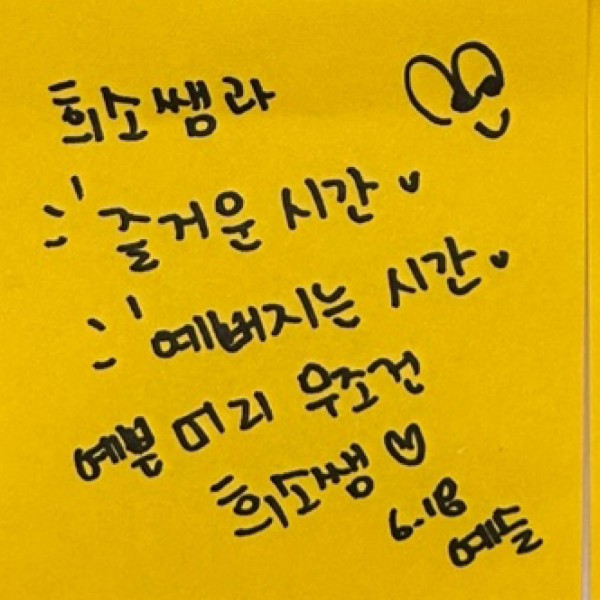 희소쌤과
즐거운 시간
예뻐지는 시간
예쁜 머리 무조건
희소쌤
6.18
예슬